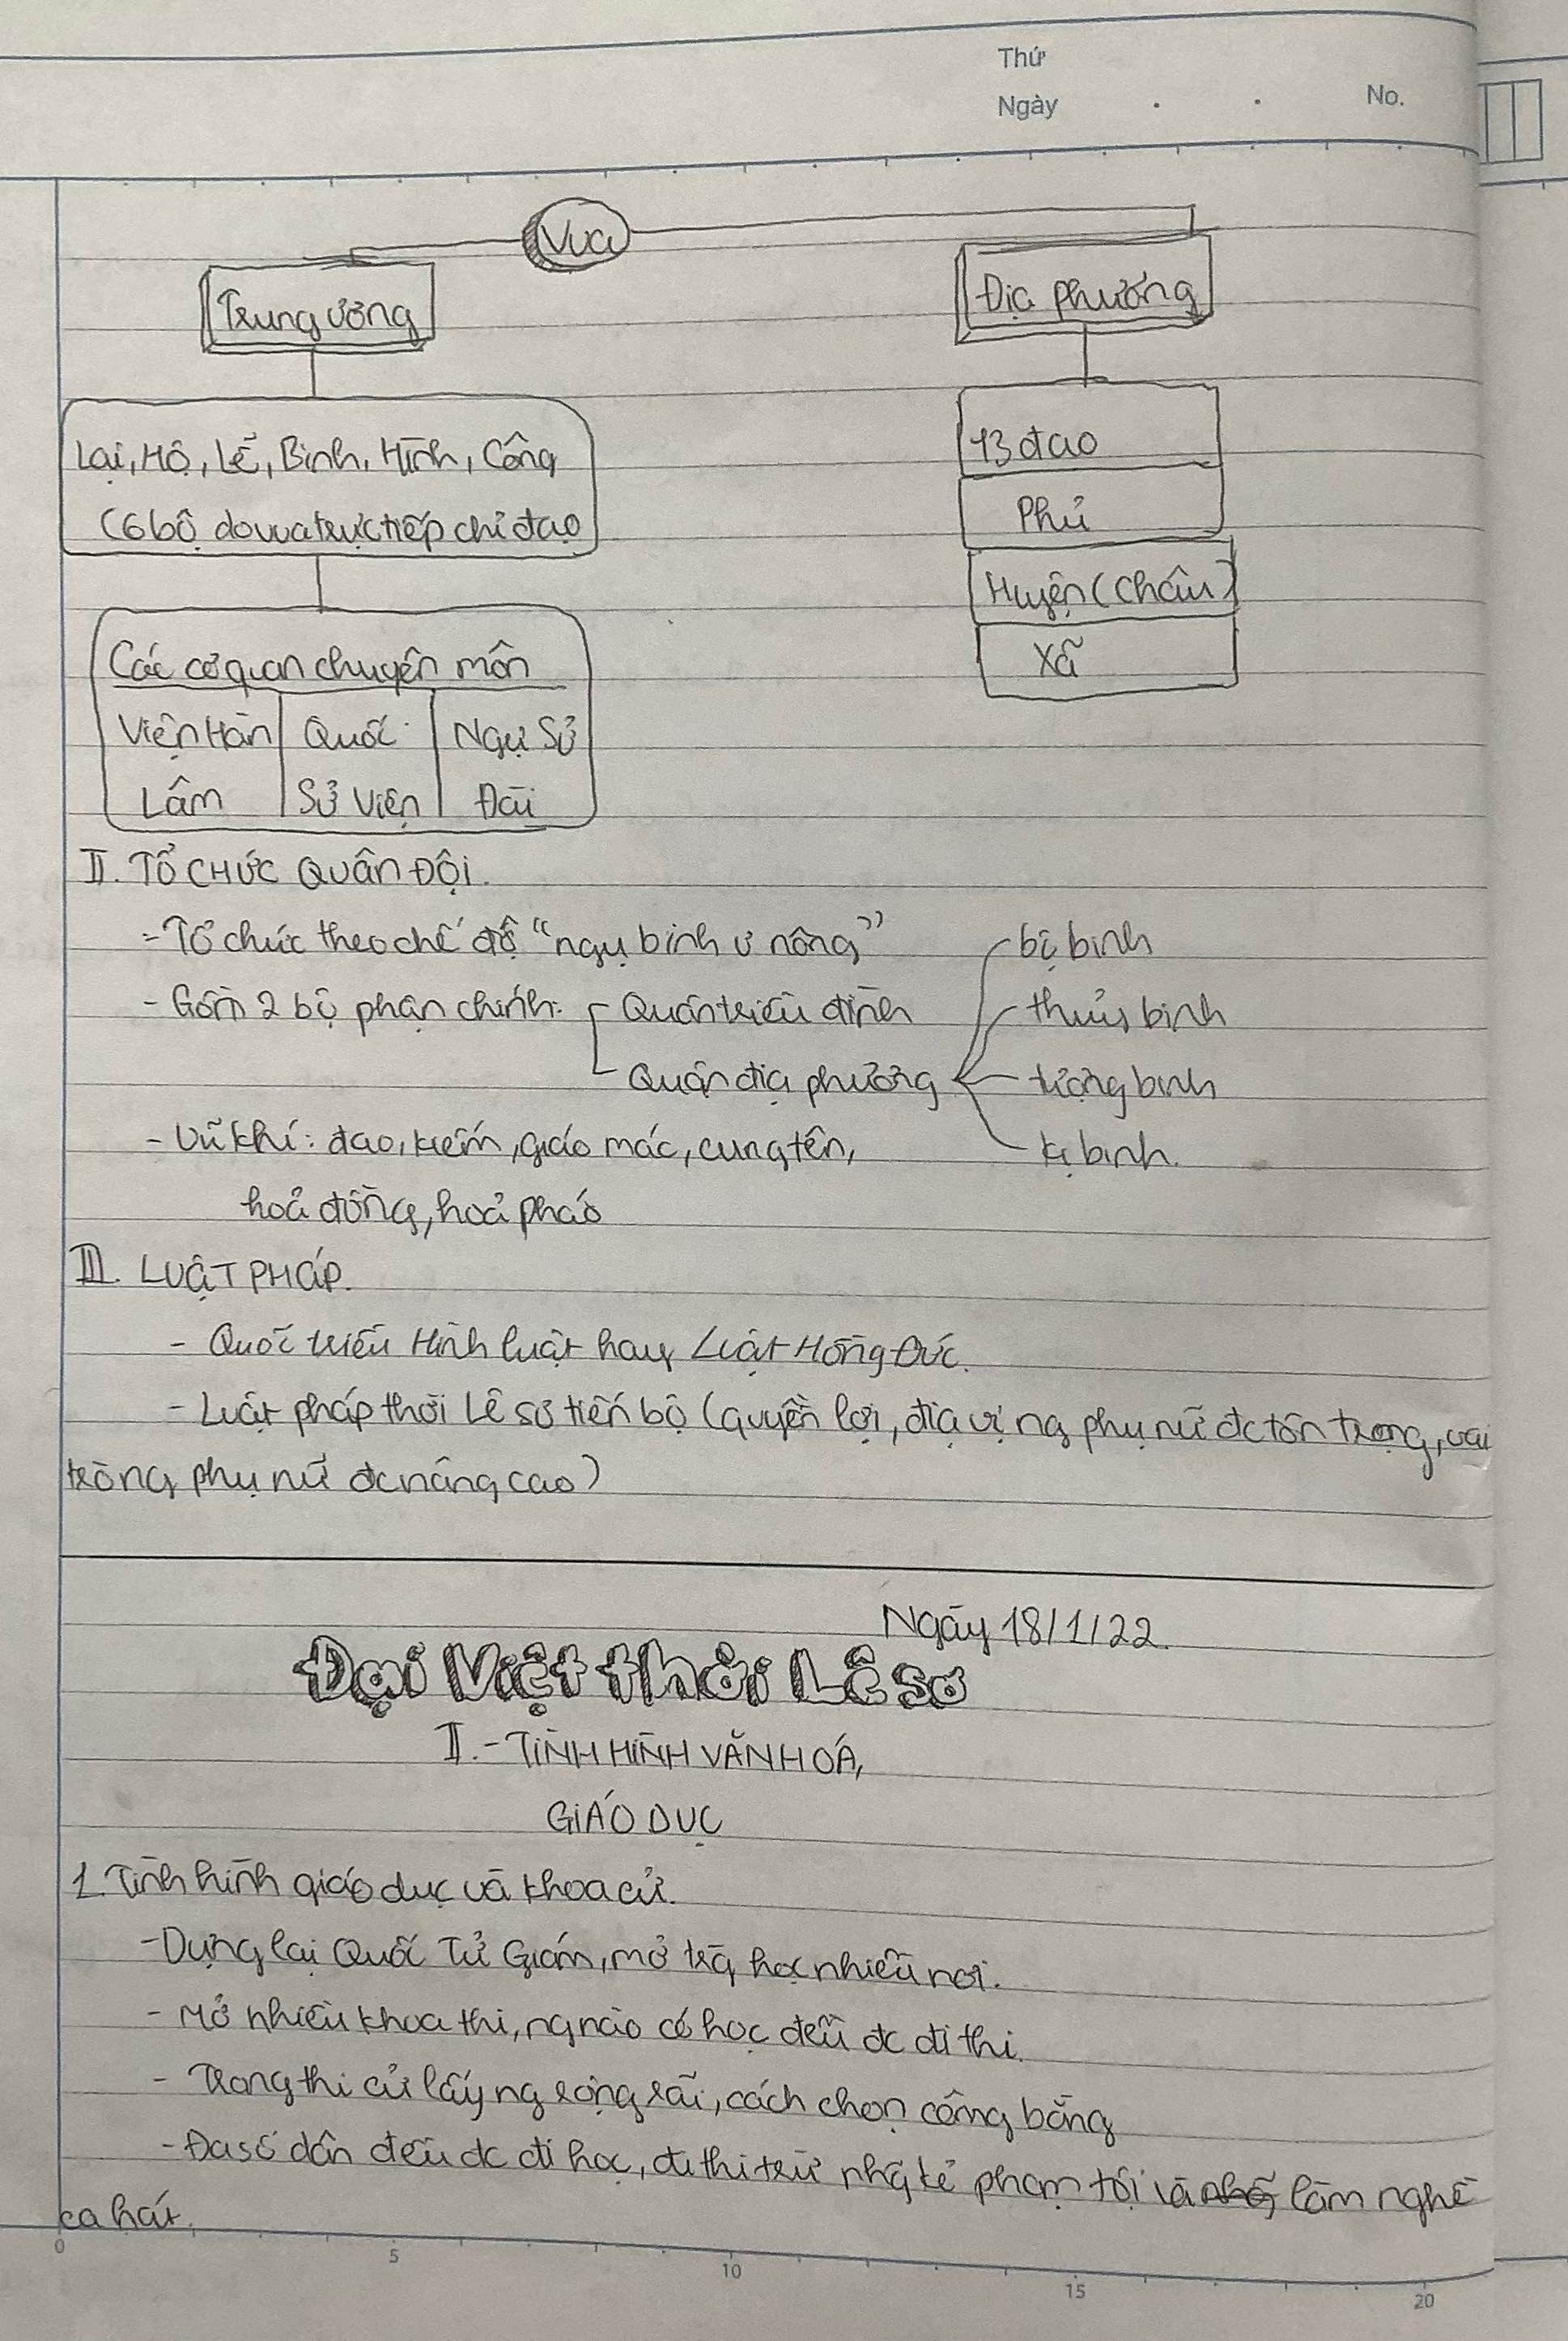 Thứ
Ngày . . No.
Vua
Trung ương
Địa phương
Lại, Hộ, Lễ, Binh, Hình, Công
(6 bộ do vua trực tiếp chỉ đạo
13 đạo
Phủ
Huyện (Châu)
Xã
Các cơ quan chuyên môn
Viện Hàn
Lâm
Quốc
Sử Viện
Ngự Sử
Đài
II. TỔ CHỨC QUÂN ĐỘI.
- Tổ chức theo chế độ "ngụ binh ư nông"
- Gồm 2 bộ phận chính: Quân triều đình
Quân địa phương
bộ binh
thuỷ binh
tượng binh
kị binh.
- Vũ khí: đao, kiếm, giáo mác, cung tên,
hoả đồng, hoả pháo
III. LUẬT PHÁP.
- Quốc triều Hình luật hay Luật Hồng Đức.
- Luật pháp thời Lê sơ tiến bộ (quyền lợi, địa vị ng phụ nữ đc tôn trọng, vai
tròng phụ nữ đc nâng cao)
Ngày 18/1/22.
Đại Việt thời Lê sơ
II. - TÌNH HÌNH VĂN HOÁ,
GIÁO DỤC
1. Tình hình giáo dục và khoa cử.
- Dựng lại Quốc Tử Giám, mở trg học nhiều nơi.
- Mở nhiều khoa thi, ng nào có học đều đc đi thi.
- Trong thi cử lấy ng rộng rãi, cách chọn công bằng
- Đa số dân đều đc đi học, đi thi trừ nhg kẻ phạm tội và làm nghề
ca hát.
0 5 10 15 20